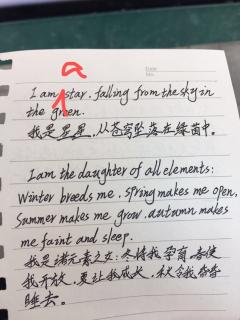 Date
No.
a
I am star, falling from the sky in
the green.
我是星星，从苍穹坠落在绿茵中。
I am the daughter of all elements:
Winter breeds me, Spring makes me open,
Summer makes me grow, autumn makes
me faint and sleep.
我是诸元素之女：冬将我孕育，春使
我开放，夏让我成长，秋令我昏昏
睡去。